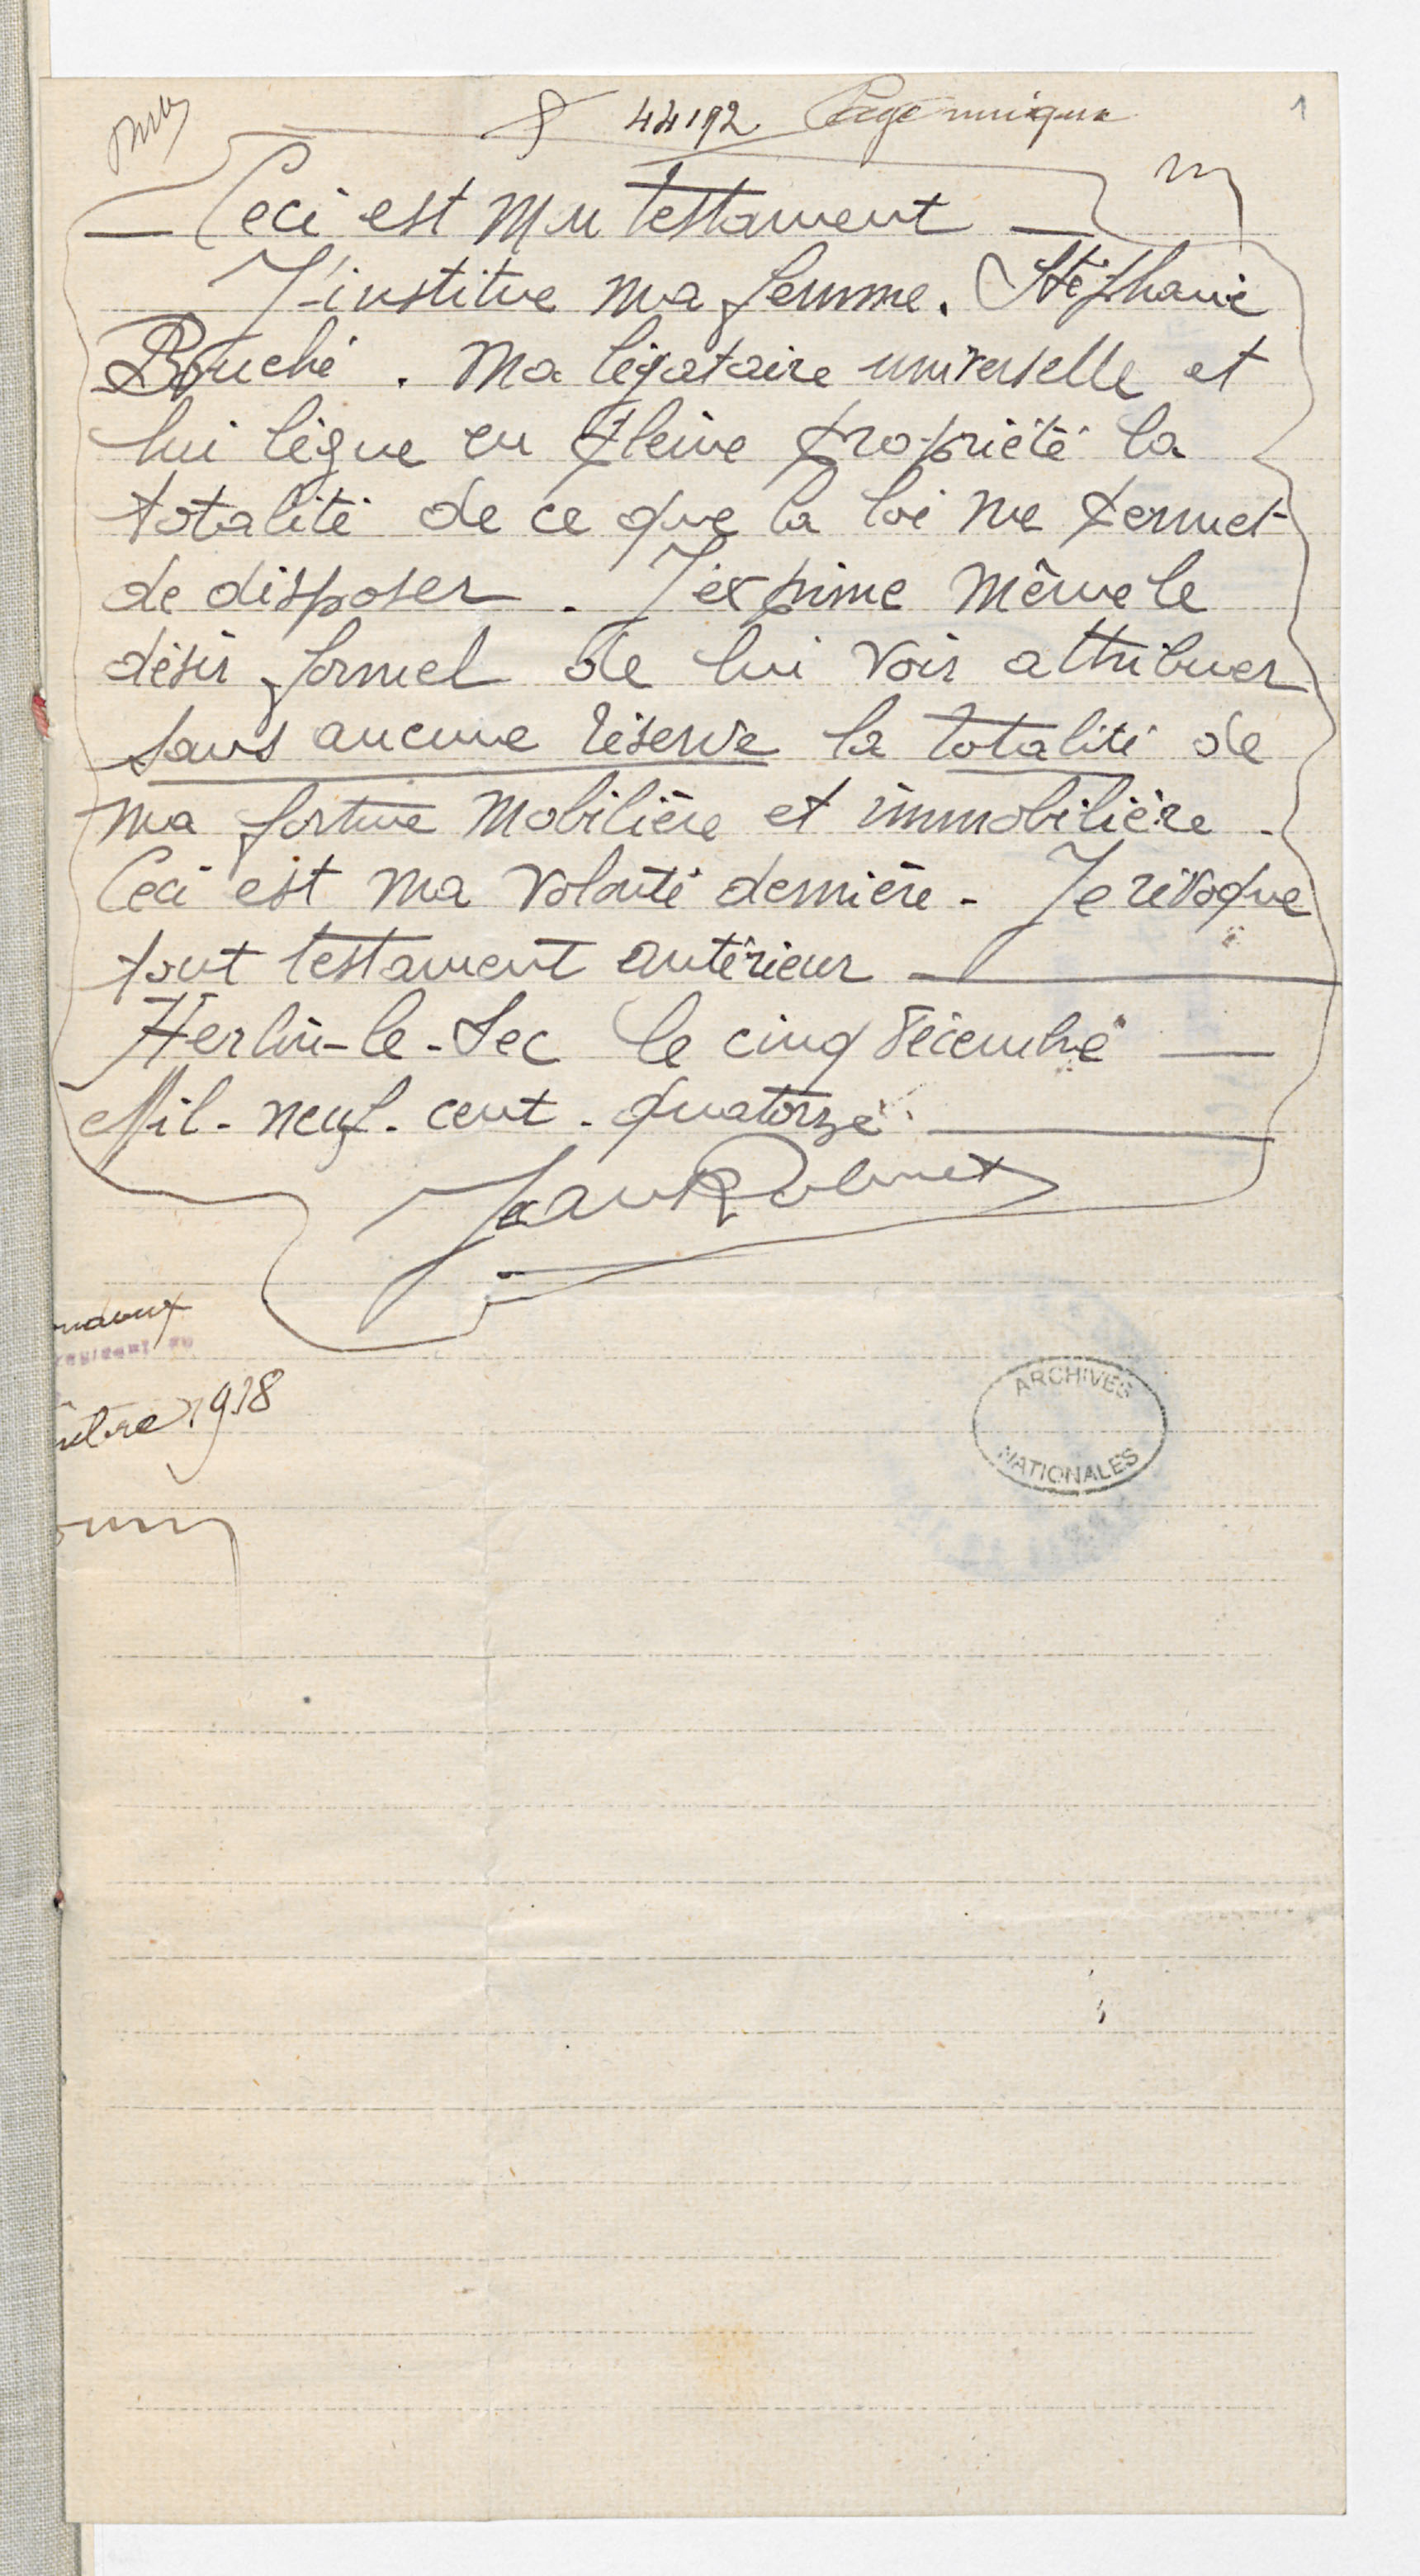 44192 Page unique
1
Ceci est mon testament
J'institue ma femme. Stéphanie
Bouché. ma légataire universelle et
lui lègue en pleine propriété la
totalité de ce que la loi me permet
de disposer. J'exprime même le
désir formel de lui voir attribuer
sans aucune réserve la totalité de
ma fortune mobilière et immobilière.
Ceci est ma volonté dernière. Je révoque
tout testament antérieur
Herlin-le-Sec le cinq décembre
Mil. neuf. cent. quatorze
Jean
1918
ARCHIVES
NATIONALES